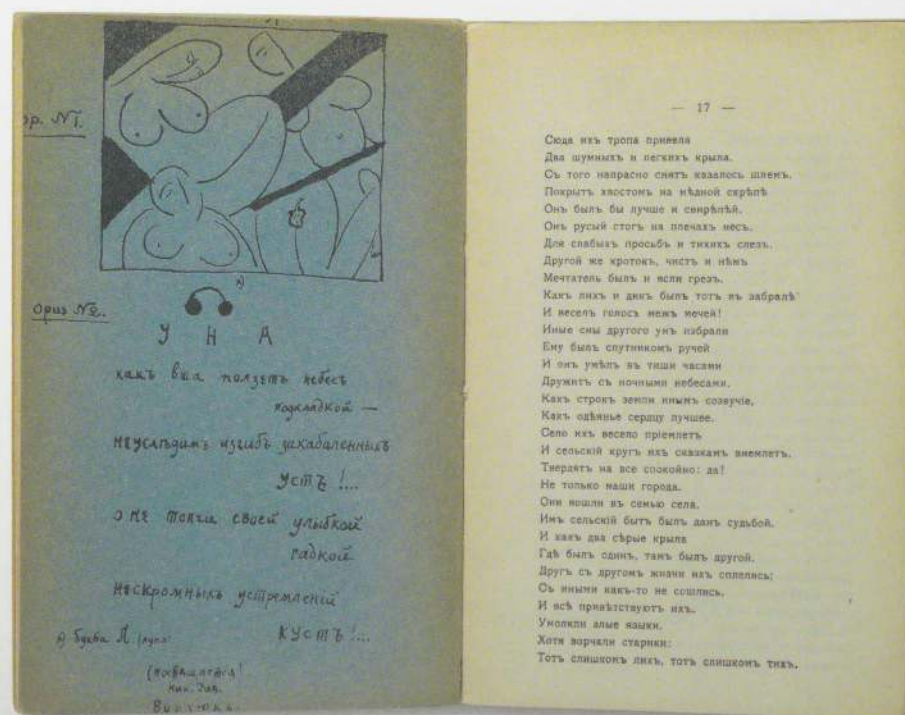 ор. №1.
а)
Opus №2.
У Н А
какъ вша ползетъ небесъ
подкладкой —
неуслѣдимъ изгибъ закабаленныхъ
устъ !...
о не топчи своей улыбкой
гадкой
нескромныхъ устремленій
кустъ !...
а) буква Л.
(посвящается!
— 17 —
Сюда ихъ тропа привела
Два шумныхъ и легкихъ крыла.
Съ того напрасно снятъ казалось шлемъ.
Покрытъ хвостомъ на мѣдной скрѣпѣ
Онъ былъ бы лучше и свирѣпѣй.
Онъ русый стогъ на плечахъ несъ.
Для слабыхъ просьбъ и тихихъ слезъ.
Другой же кротокъ, чистъ и нѣмъ
Мечтатель былъ и ясли грезъ.
Какъ лихъ и дикъ былъ тотъ въ забралѣ
И веселъ голосъ межъ мечей!
Иные сны другого умъ избрали
Ему былъ спутникомъ ручей
И онъ умѣлъ въ тиши часами
Дружитъ съ ночными небесами.
Какъ строкъ земли инымъ созвучіе,
Какъ одѣянье сердцу лучшее.
Село ихъ весело пріемлетъ
И сельскій кругъ ихъ сказкамъ внемлетъ.
Твердятъ на все спокойно: да!
Не только наши города.
Они вошли въ семью села.
Имъ сельскій бытъ былъ данъ судьбой.
И какъ два сѣрые крыла
Гдѣ былъ одинъ, тамъ былъ другой.
Другъ съ другомъ жизни ихъ сплелись;
Съ иными какъ-то не сошлись.
И всѣ привѣтствуютъ ихъ.
Умолкли злые языки.
Хотя ворчали старики:
Тотъ слишкомъ лихъ, тотъ слишкомъ тихъ.